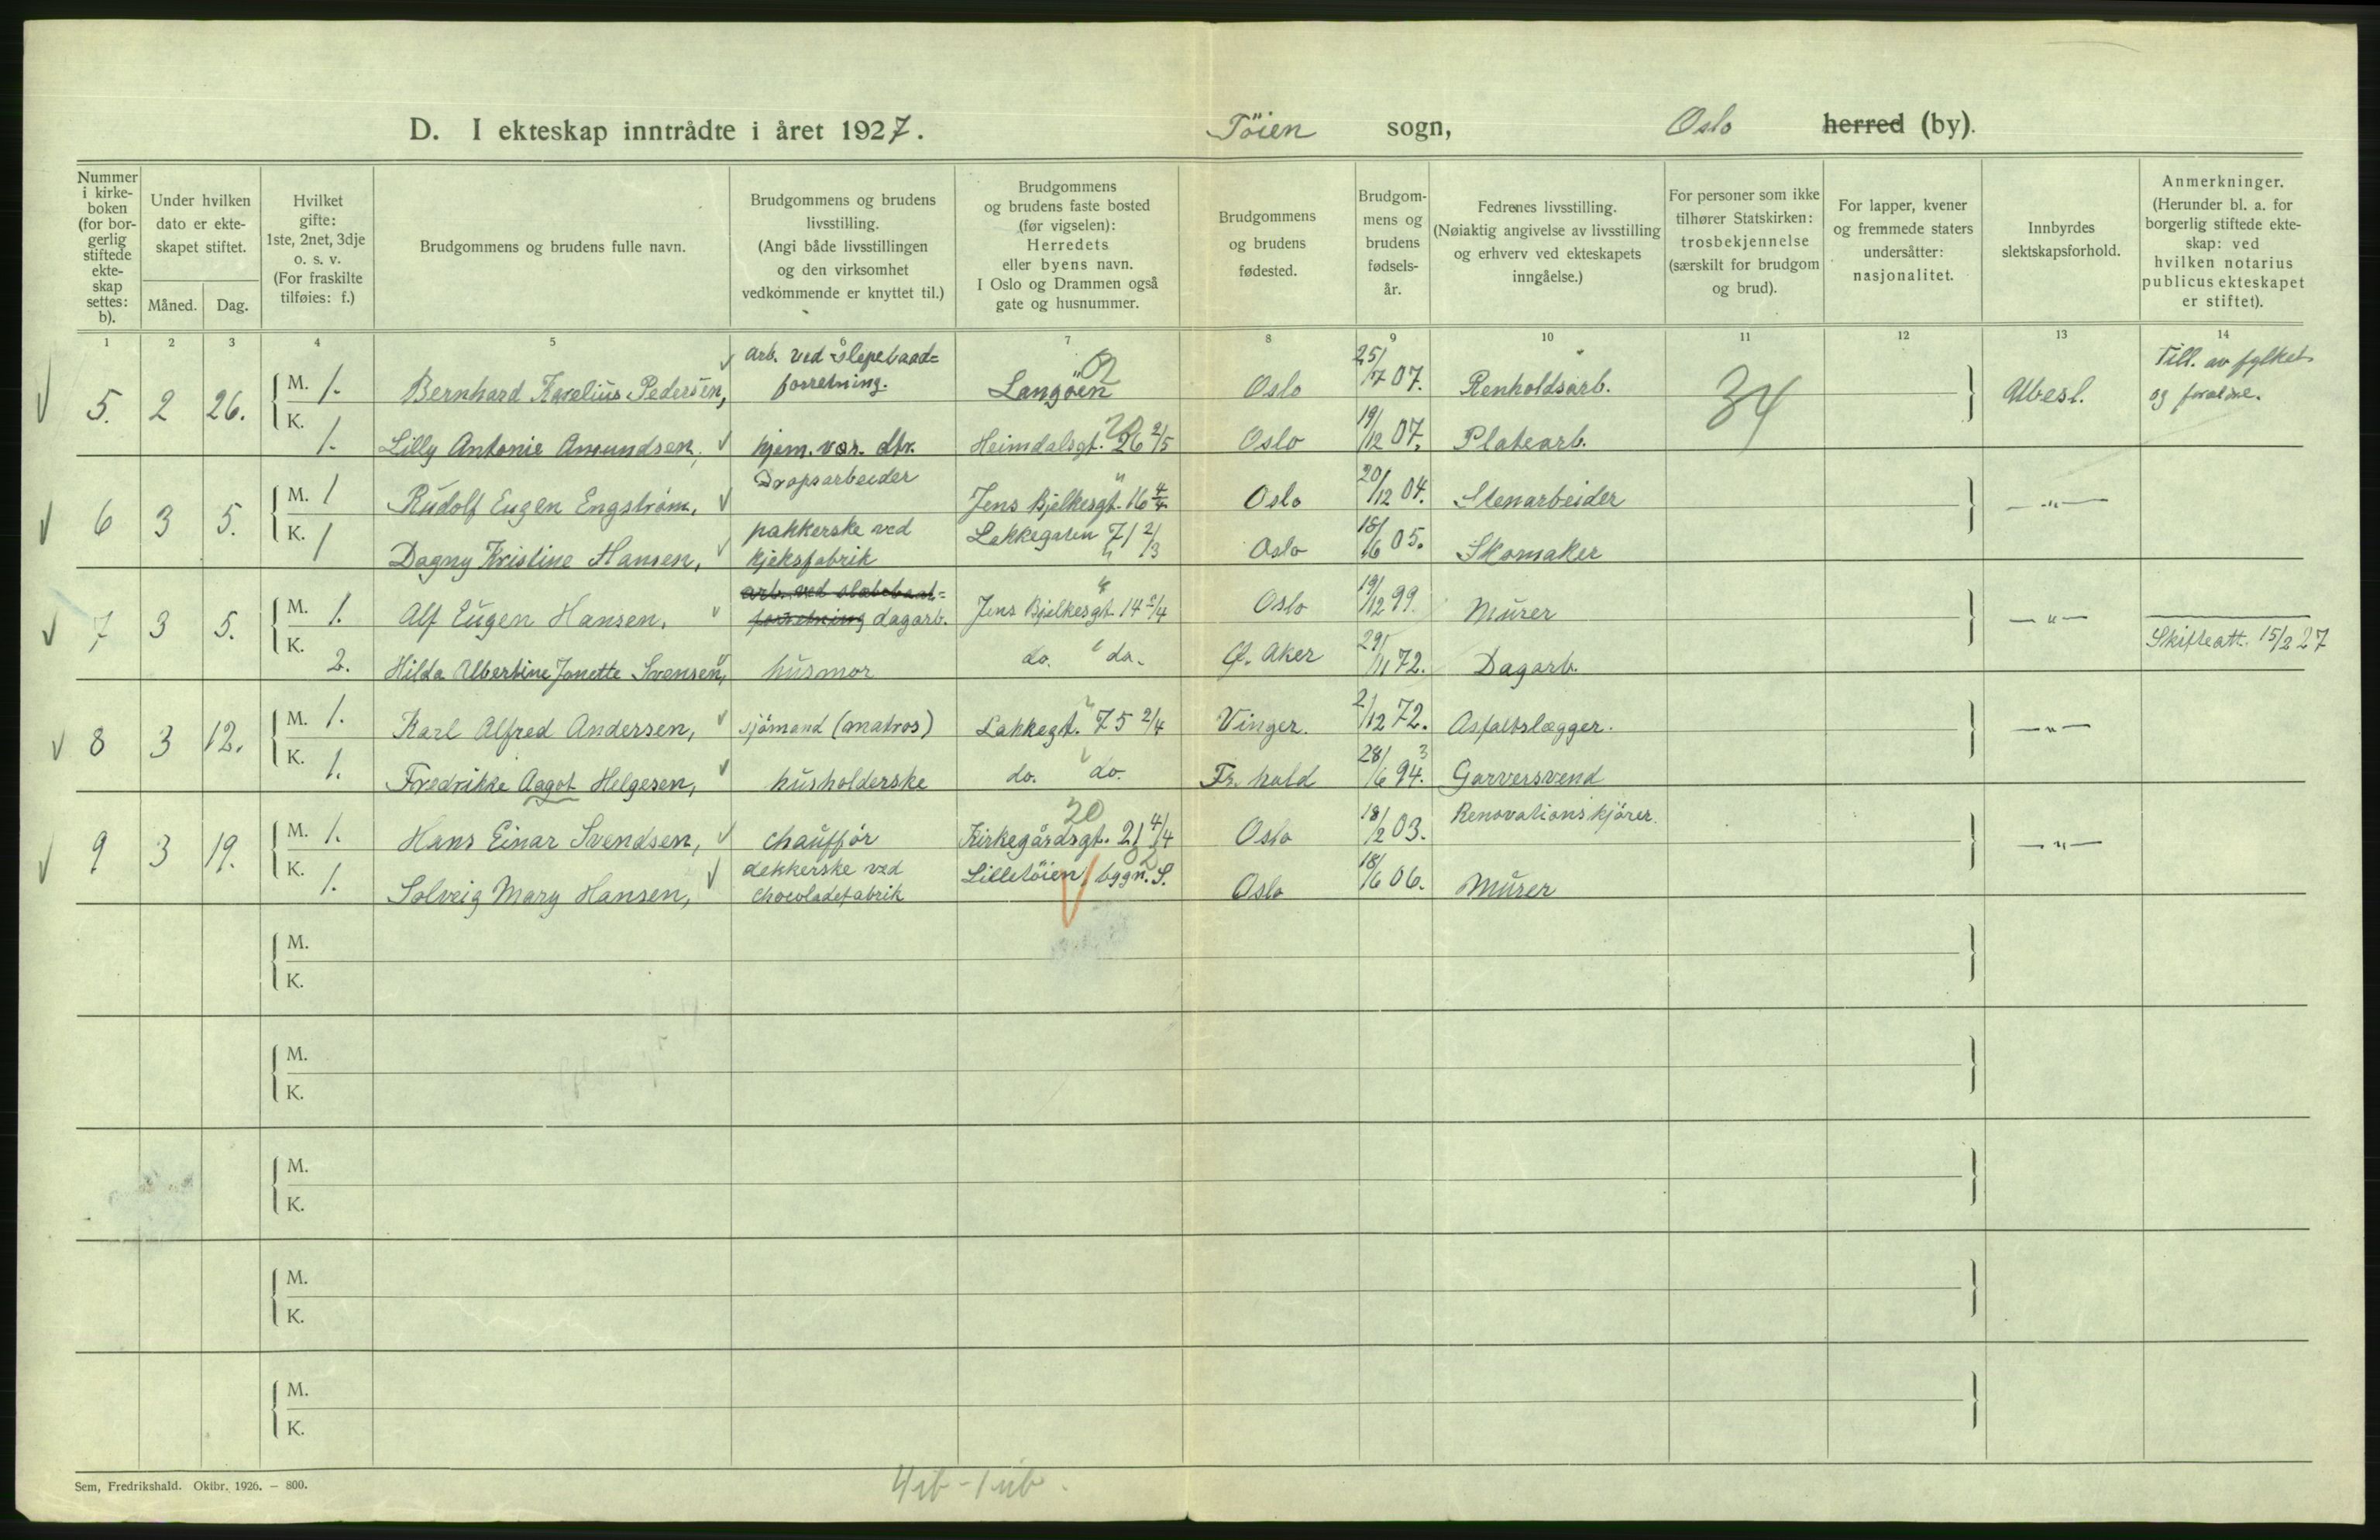 D. I ekteskap inntrådte i året 1927. Töien sogn, Oslo herred (by).
Nummer i kirkeboken (for borgerlig stiftede ekteskap settes: b).
Under hvilken dato er ekteskapet stiftet.
Måned. Dag.
Hvilket gifte: 1ste, 2net, 3dje o. s. v. (For fraskilte tilføies: f.)
Brudgommens og brudens fulle navn.
Brudgommens og brudens livsstilling. (Angi både livsstillingen og den virksomhet vedkommende er knyttet til.)
Brudgommens og brudens faste bosted (før vigselen): Herredets eller byens navn. I Oslo og Drammen også gate og husnummer.
Brudgommens og brudens fødested.
Brudgommens og brudens fødselsår.
Fedrenes livsstilling. (Nøiaktig angivelse av livsstilling og erhverv ved ekteskapets inngåelse.)
For personer som ikke tilhører Statskirken: trosbekjennelse (særskilt for brudgom og brud).
For lapper, kvener og fremmede staters undersåtter: nasjonalitet.
Innbyrdes slektskapsforhold.
Anmerkninger. (Herunder bl. a. for borgerlig stiftede ekteskap: ved hvilken notarius publicus ekteskapet er stiftet).
1 2 3 4 5 6 7 8 9 10 11 12 13 14
5. 2 26. M. 1. Bernhard Karelius Pedersen, arb. ved slepebaad=forretning. Langöen Oslo 25/7 07. Renholdsarb. 34 Ubesl. Till. av fylket og foreldre.
K. 1. Lilly Antonie Amundsen, hjem. vær. dtr. Heimdalsgt. 26 2/5 Oslo 19/12 07. Platearb.
6 3 5. M. 1 Rudolf Eugen Engström, Dropsarbeider Jens Bjelkesgt. 16 4/4 Oslo 20/12 04. Stenarbeider —"—
K. 1 Dagny Kristine Hansen, pakkerske ved kjeksfabrik Lakkegaten 71 2/3 Oslo 18/6 05. Skomaker
7 3 5. M. 1. Alf Eugen Hansen, arb. ved slæbebaat=forretning dagarb. Jens Bjelkesgt. 14 Oslo 19/12 99. Murer —"—
K. 2. Hilda Albertine Janette Svensen, husmor do. do. Ø. Aker 29/11 72. Dagarb. Skifteatt. 15/2 27
8 3 12. M. 1. Karl Alfred Andersen, sjömand (matros) Lakkegt. 75 2/4 Vinger. 2/12 72. Asfaltslægger. —"—
K. 1. Fredrikke Aagot Helgesen, husholderske do. do. Fr. hald 28/6 94. 3 Garversvend
9 3 19. M. 1. Hans Einar Svendsen, chaufför 20 Kirkegårdsgt. 21 4/4 Oslo 18/2 03. Renovationskjörer. —"—
K. 1. Solveig Mary Hansen, dekkerske ved chocoladefabrik Lilletöien, bygn. S. Oslo 18/6 06. Murer
M.
K.
M.
K.
M.
K.
M.
K.
M.
K.
Sem, Fredrikshald. Oktbr. 1926. — 800.